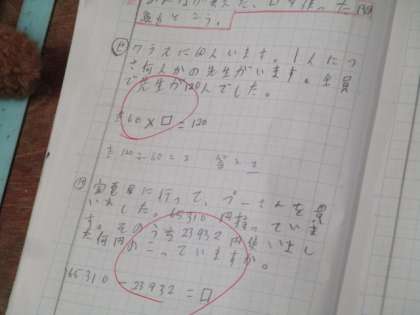 クラスに60人います。1人につ
き何人かの先生がいます。全員
で先生が120人でした。
式60×□=120
式120÷60=2 答え2
に行って、プーさんを買
いました。65310円持っていま
す。そのうち23932円使いまし
た。何円のこっていますか。
65310-23932=□